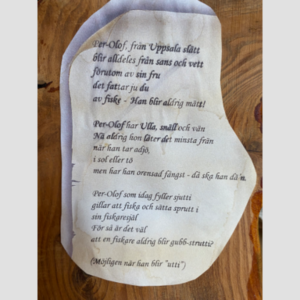 Per-Olof, från Uppsala slätt
blir alldeles från sans och vett
förutom av sin fru
det fattar ju du
av fiske - Han blir aldrig mätt!
Per-Olof har Ulla, snäll och vän
Nä aldrig hon låter det minsta från
när han tar adjö,
i sol eller tö
men har han orensad fångst - då ska han dä'n.
Per-Olof som idag fyller sjutti
gillar att fiska och sätta sprutt i
sin fiskaresjäl
För så är det väl
att en fiskare aldrig blir gubb-strutti?
(Möjligen när han blir "utti")